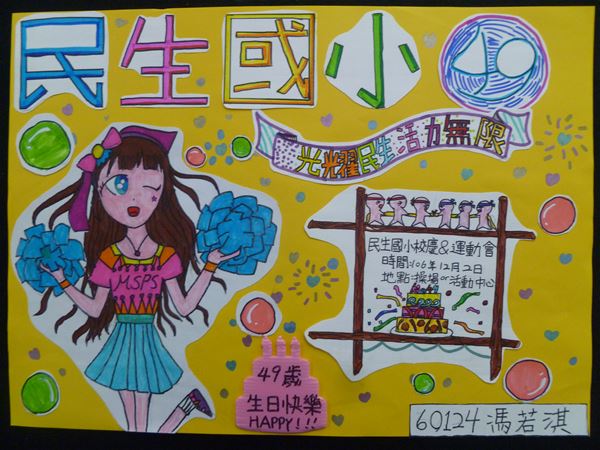 民生國小 49
光耀民生活力無限
MSPS
民生國小校慶&運動會
時間:106年12月2日
地點:操場or活動中心
49歲
生日快樂
HAPPY!!!
60124馮若淇